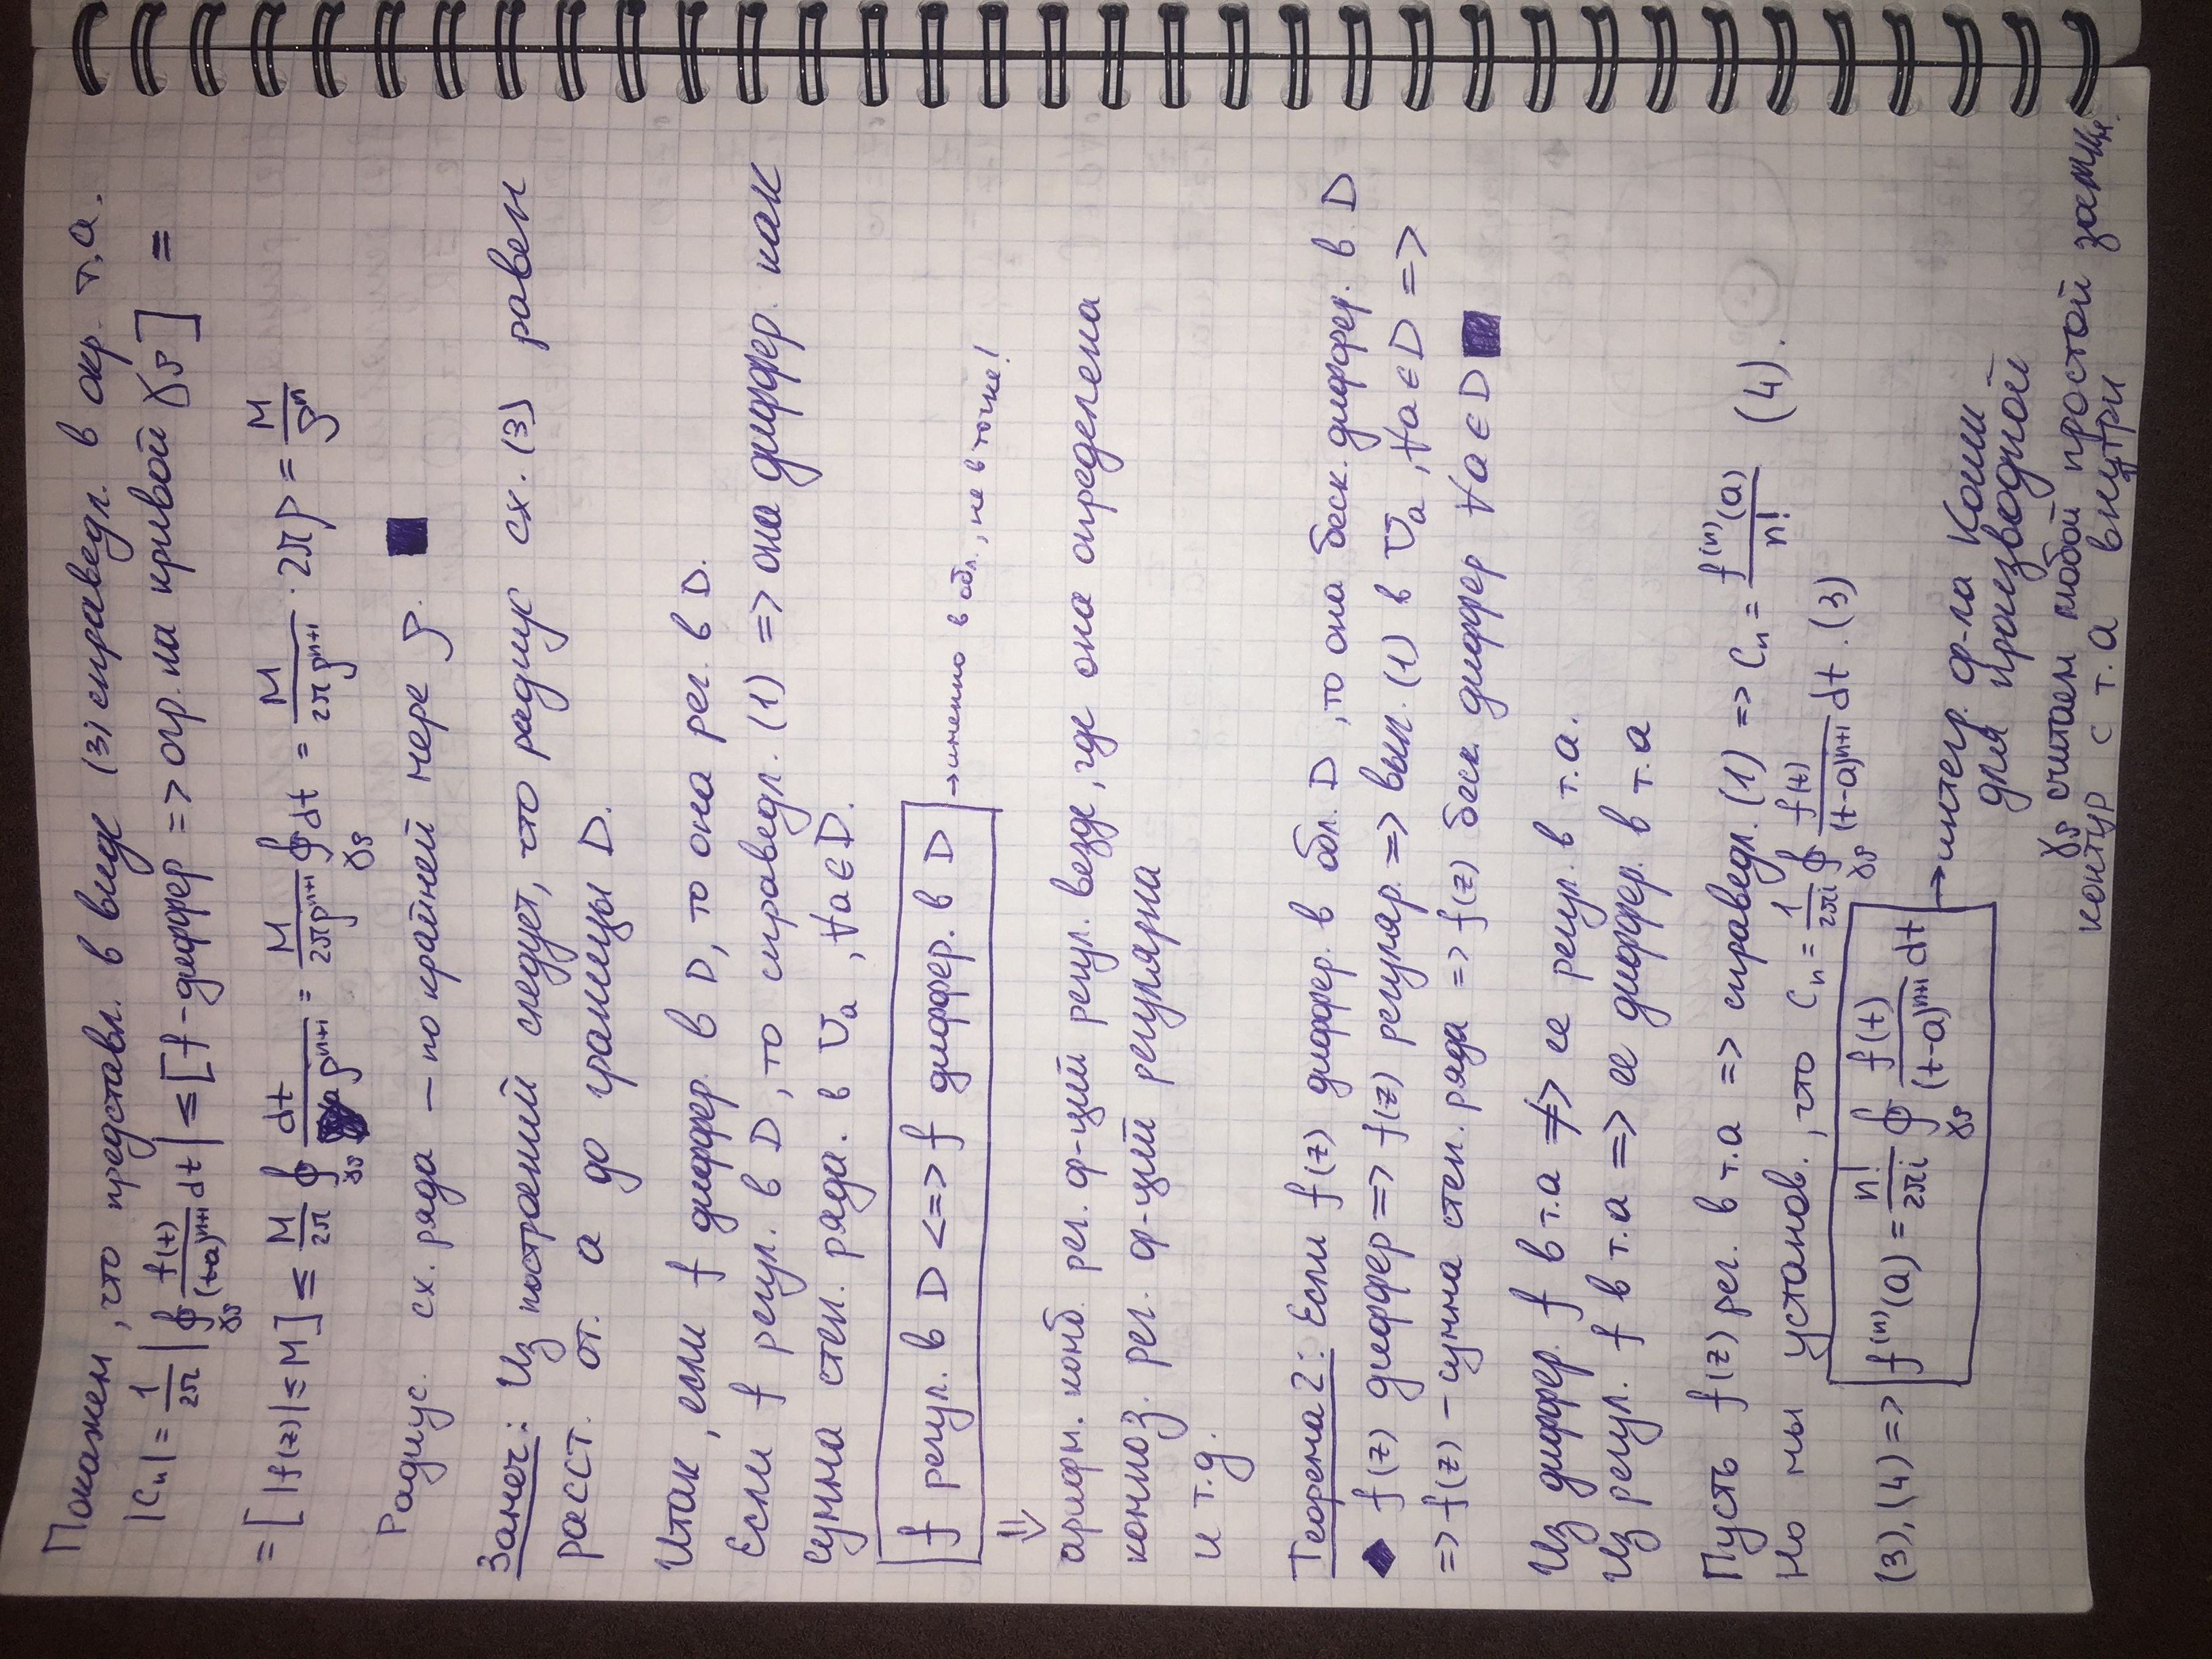 Покажем, что представл. в виде (3) справедл. в окр. т.а.
|Cₙ| = 1/2π |∮_γρ f(t)/(t-a)ⁿ⁺¹ dt| ≤ [f - диффер => огр. на кривой γρ] =
= [|f(z)| ≤ M] ≤ M/2π ∮_γρ dt/ρⁿ⁺¹ = M/2πρⁿ⁺¹ ∮_γρ dt = M/2πρⁿ⁺¹ · 2πρ = M/ρⁿ
Радиус. сх. ряда – по крайней мере ρ. ■
Замеч: Из построений следует, что радиус сх. (3) равен
расст. от. а до границы D.
Итак, если f диффер. в D, то она рег. в D.
Если f регул. в D, то справедл. (1) => она диффер. как
сумма степ. ряда. в Uₐ, ∀a∈D.
f регул. в D <=> f диффер. в D → именно в обл., не в точке!
⇓
арифм. комб. рег. ф-ций регул. везде, где она определена
композ. рег. ф-ций регулярна
и т.д.
Теорема 2: Если f(z) диффер. в обл. D, то она беск. диффер. в D
◆ f(z) диффер => f(z) регуляр. => вып. (1) в Uₐ, ∀a∈D =>
=> f(z) – сумма степ. ряда => f(z) беск. диффер ∀a∈D ■
Из диффер. f в т.а ≠> ее регул. в т.а.
Из регул. f в т.а => ее диффер. в т.а
Пусть f(z) рег. в т.а => справедл. (1) => Cₙ = f⁽ⁿ⁾(a)/n! (4).
Но мы установ., что Cₙ = 1/2πi ∮_γρ f(t)/(t-a)ⁿ⁺¹ dt. (3)
(3), (4) => f⁽ⁿ⁾(a) = n!/2πi ∮_γρ f(t)/(t-a)ⁿ⁺¹ dt
→ интегр. ф-ла Коши
для производной
γρ считаем любой простой замкн.
контур с т.а внутри